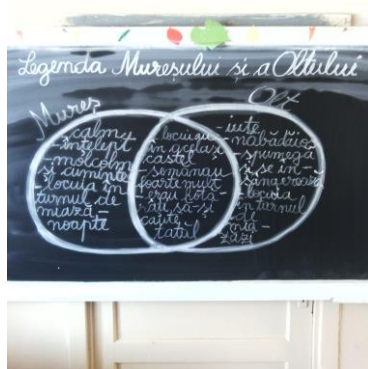 Legenda Mureșului și a Oltului
Mureș
Olt
- calm,
înțelept
- molcom
și cuminte
- locuia în
turnul de
miază-
noapte
- locuiau
în același
castel
- semănau
foarte mult
- erau hotă-
râți să-și
caute
tatăl
- iute
- nabădăios
- spumegă
și se în-
sângerează
- locuia
în turnul
de
mia-
zăzi